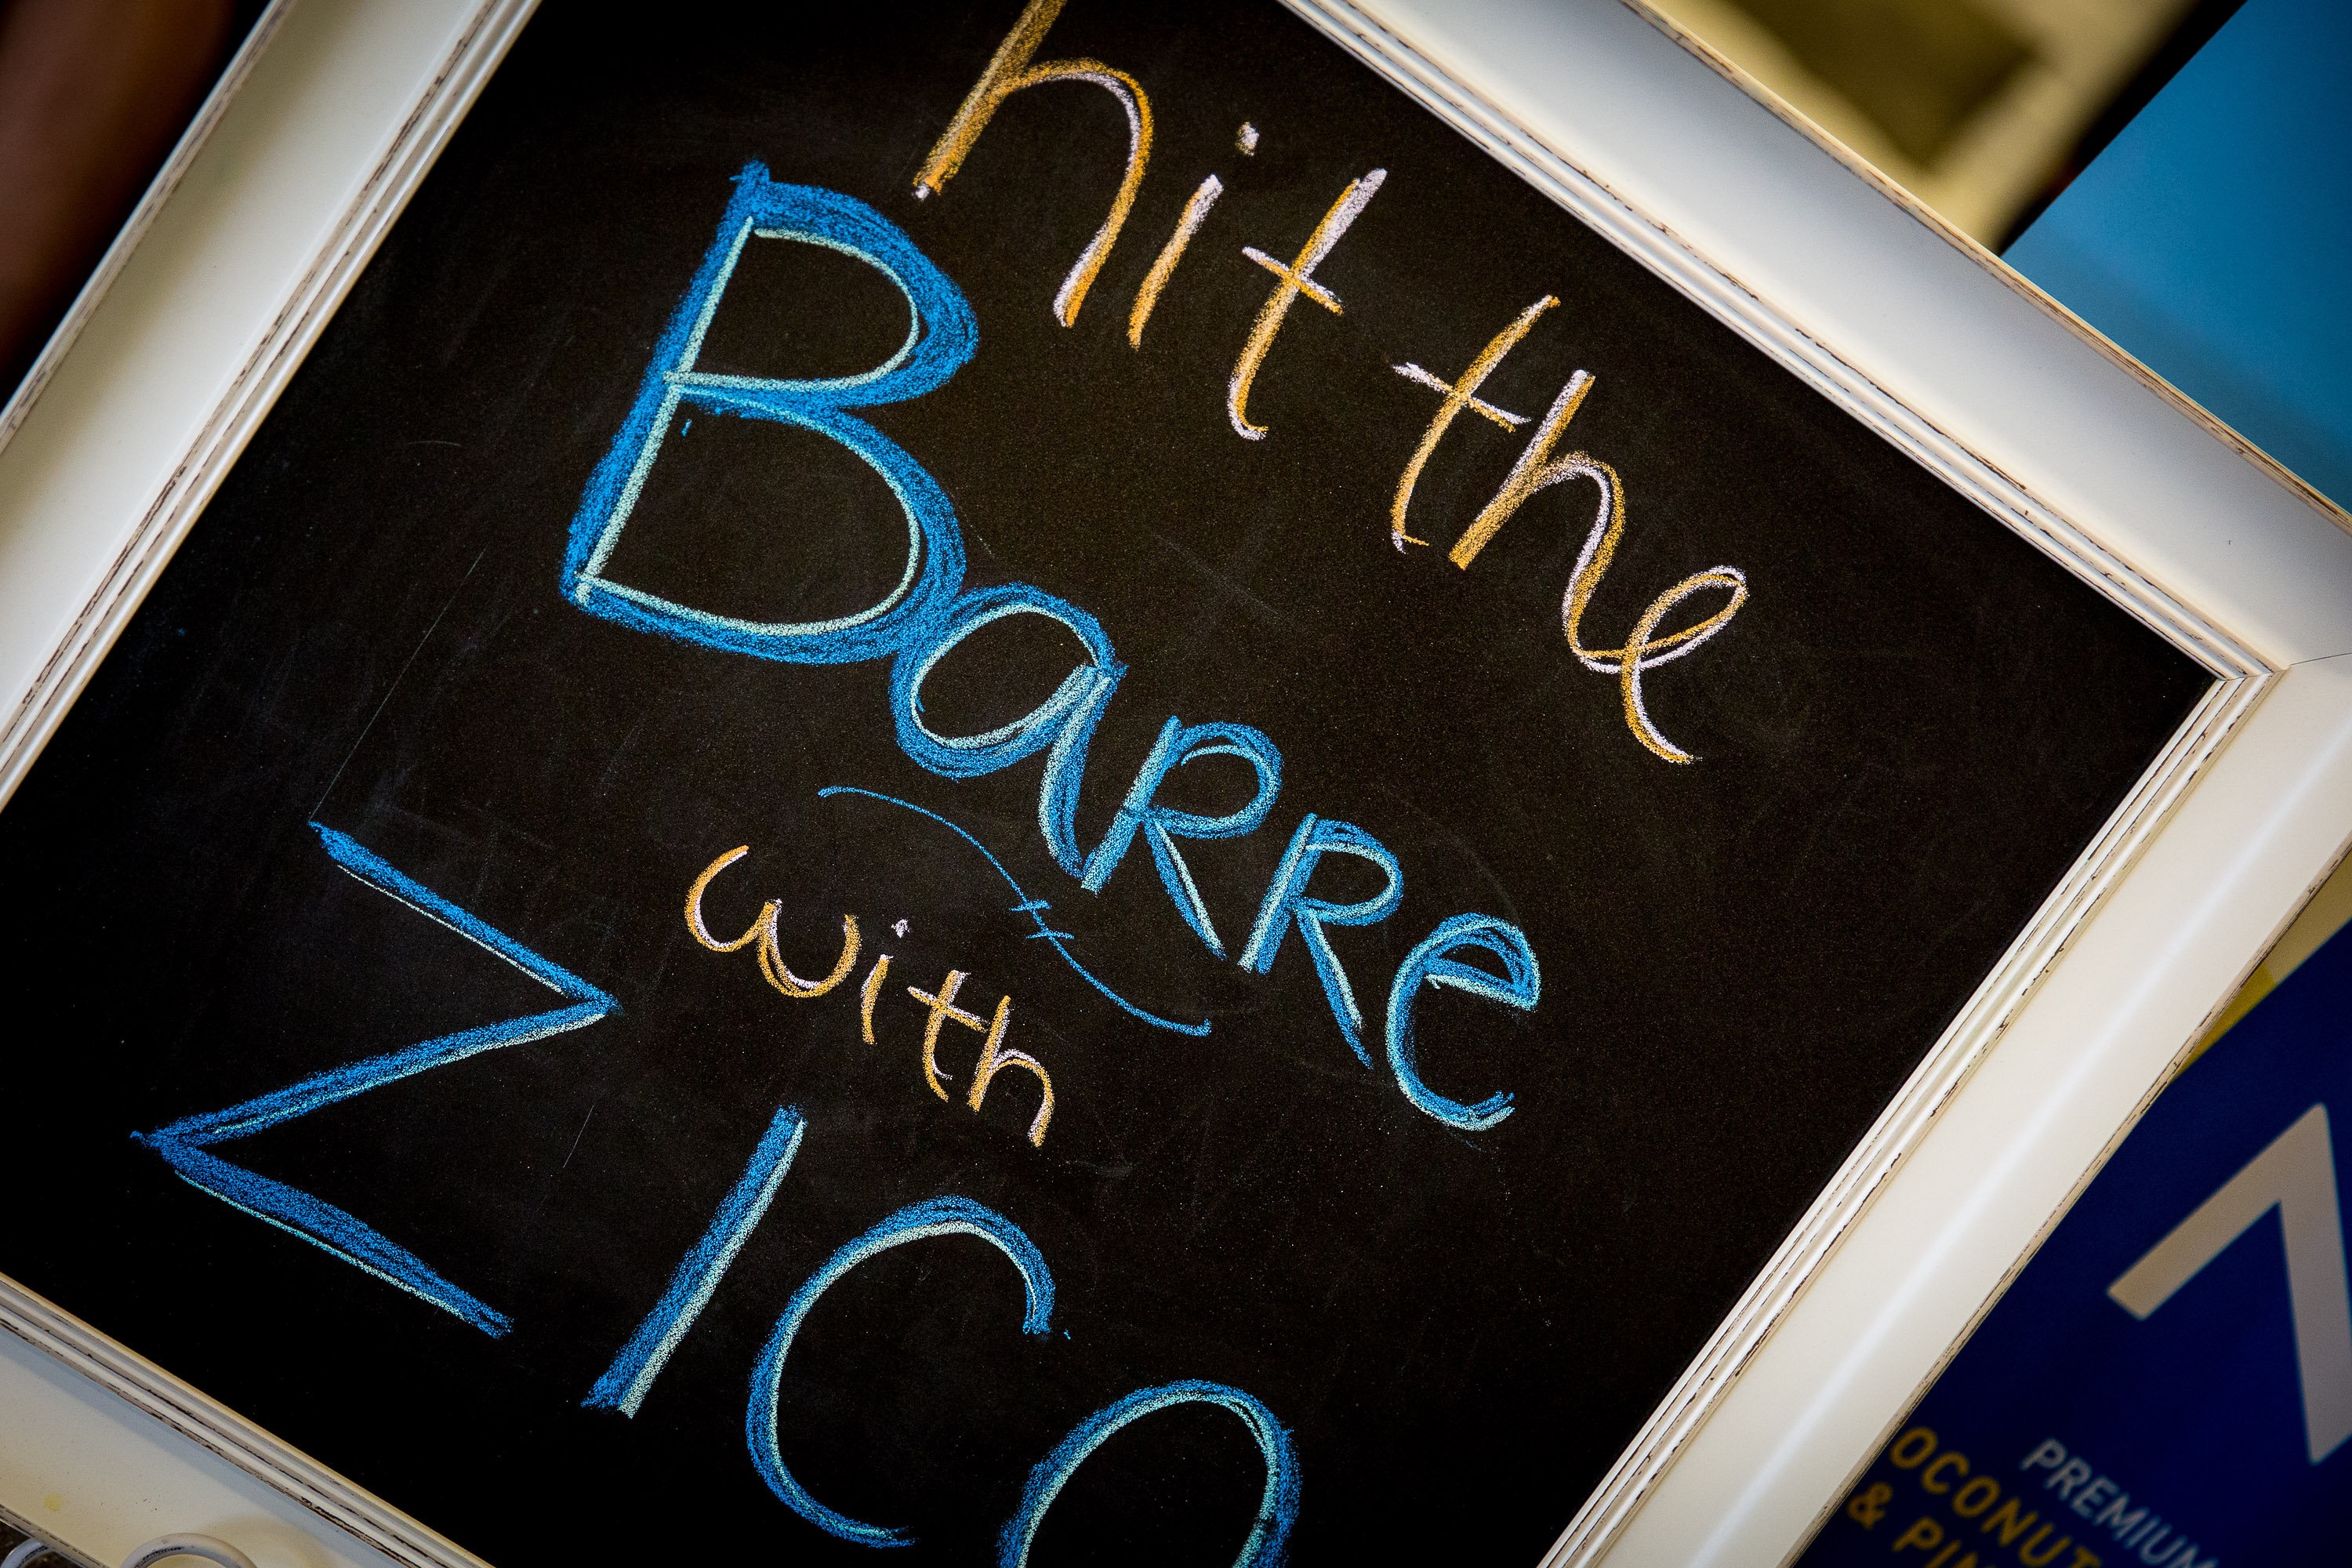 hit the
Barre
with
ZICO
PREMIUM
OCONUT
& PIN